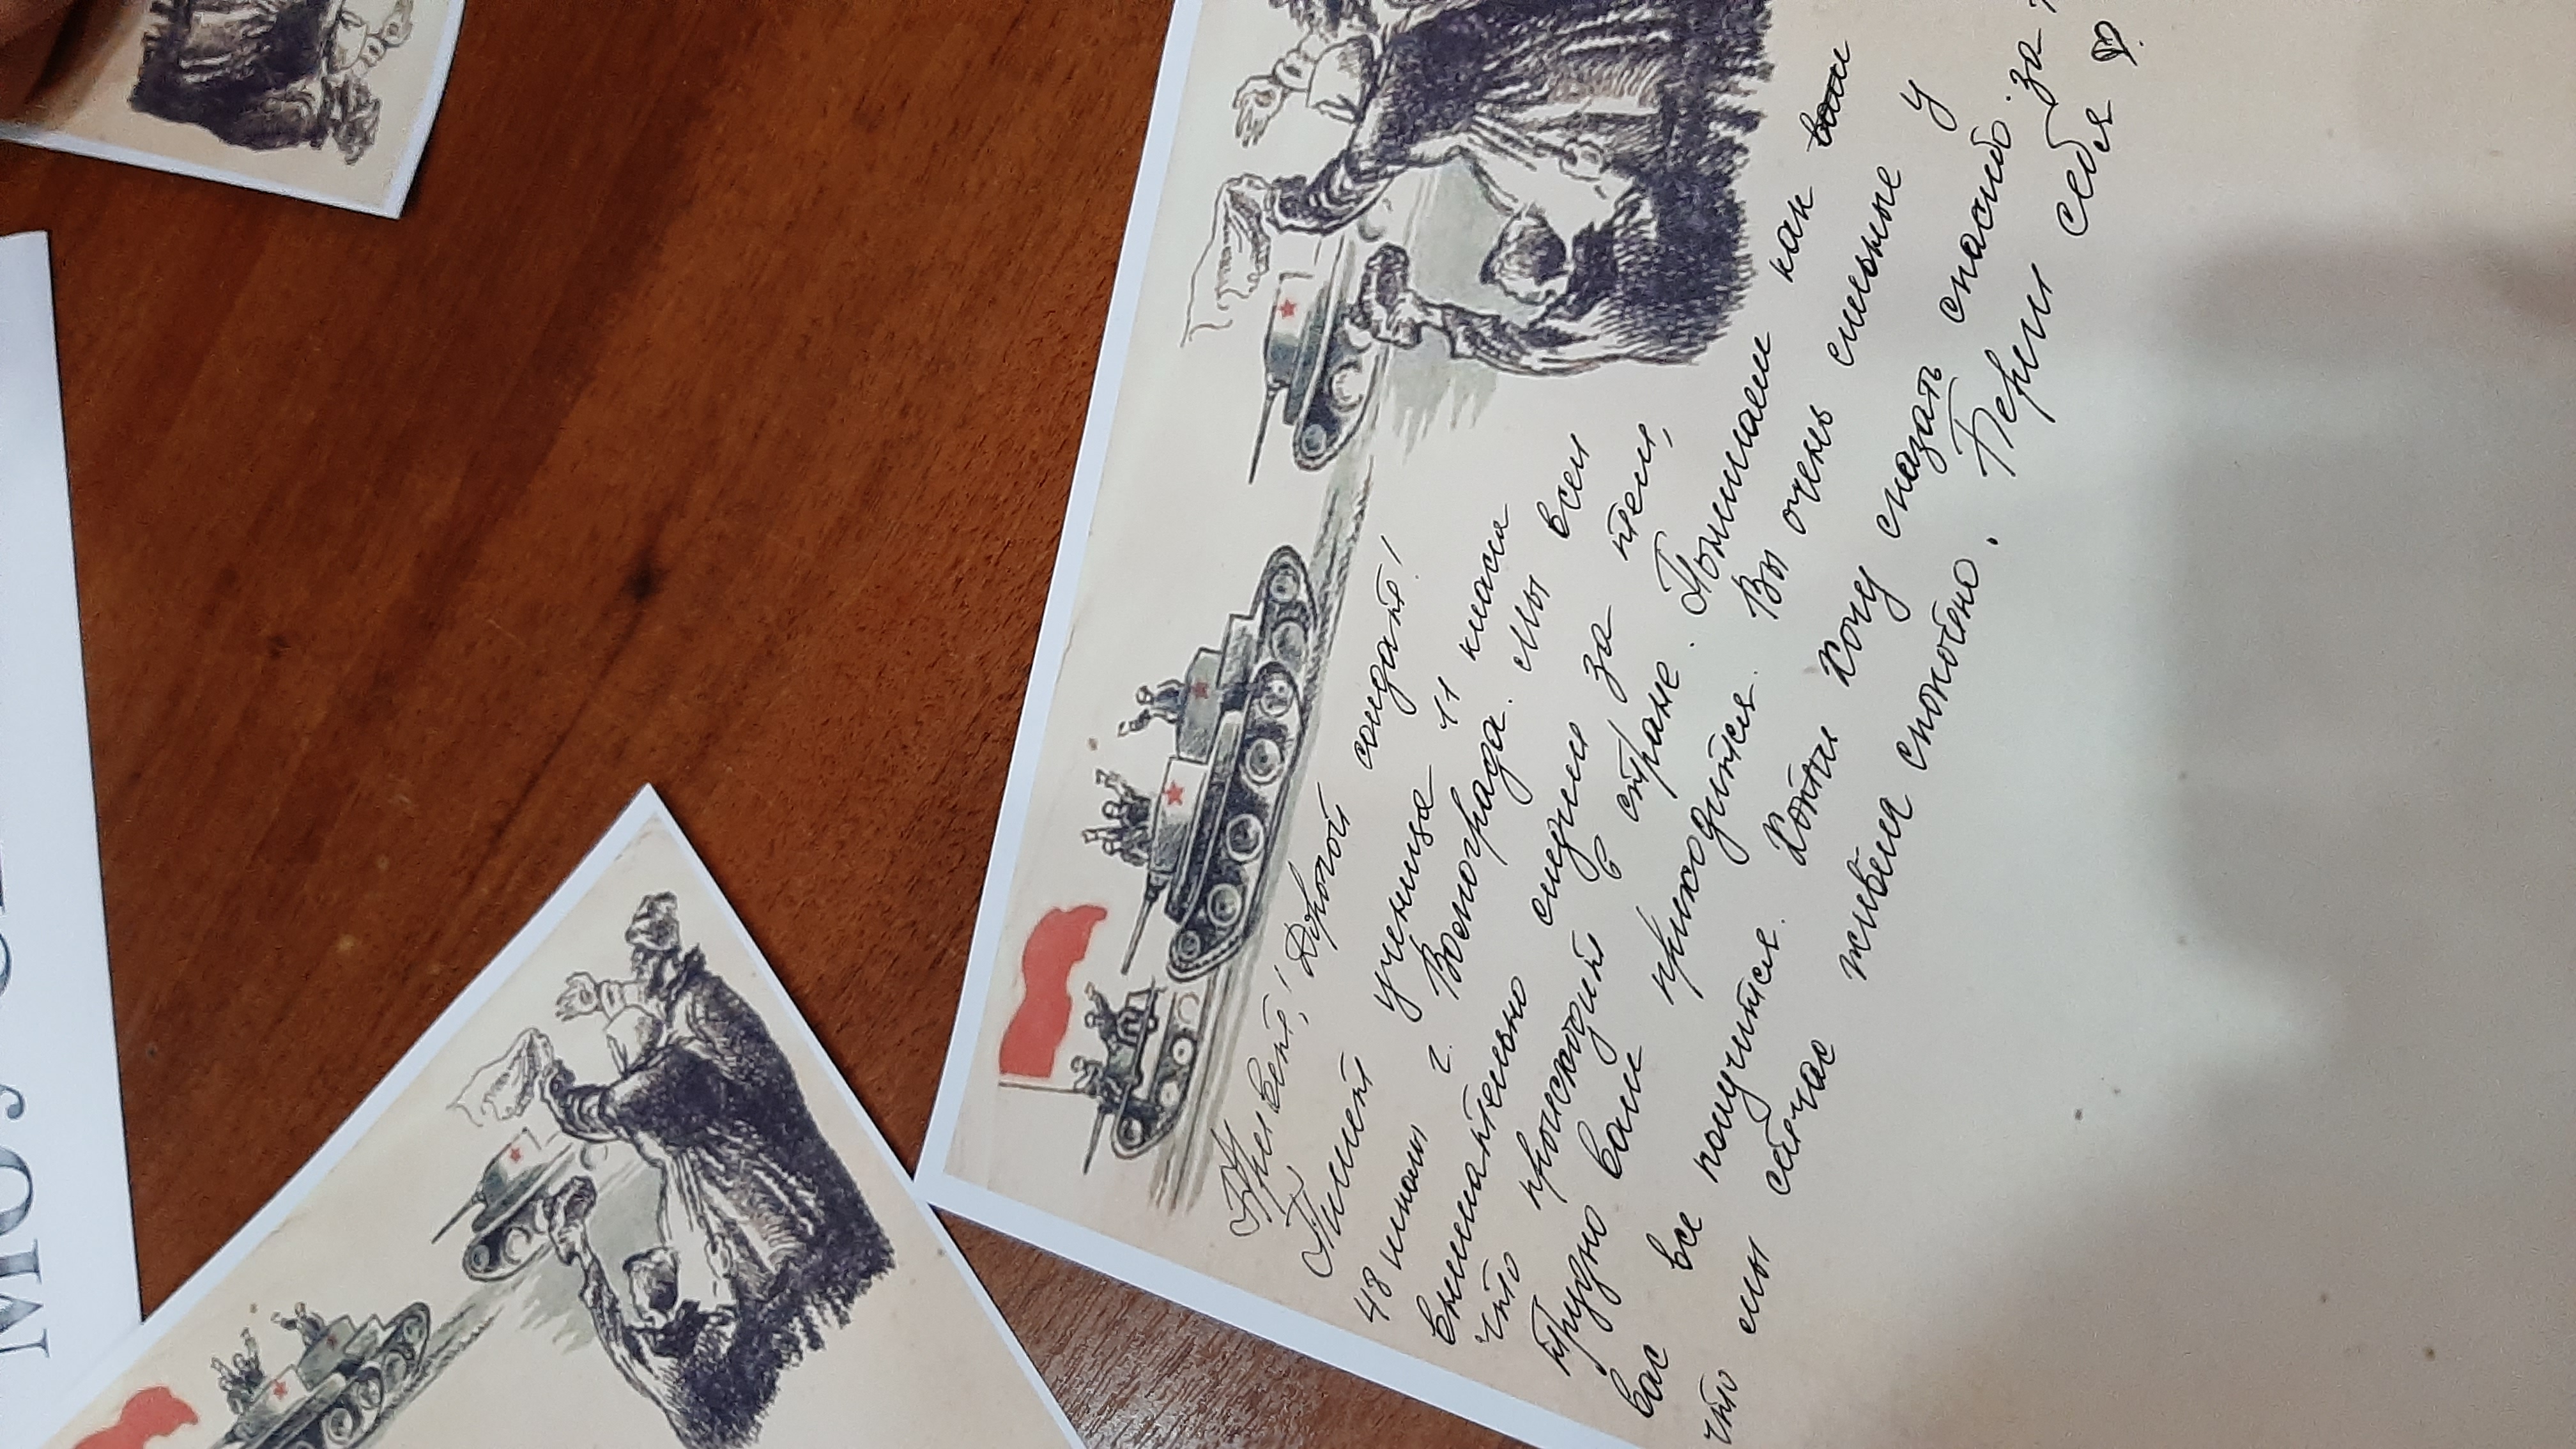 Привет! Дрогой солдат!
Пишет ученица 11 класса
48 школы г. Волгограда. Мы всей
внимательно следим за тем,
что происходит в стране. Понимаем как
трудно вам приходится. Вы очень сильные у
вас все получится. Хотим Хочу сказать спасибо за
что мы сейчас живем спокойно. Береги себя
МОЈ